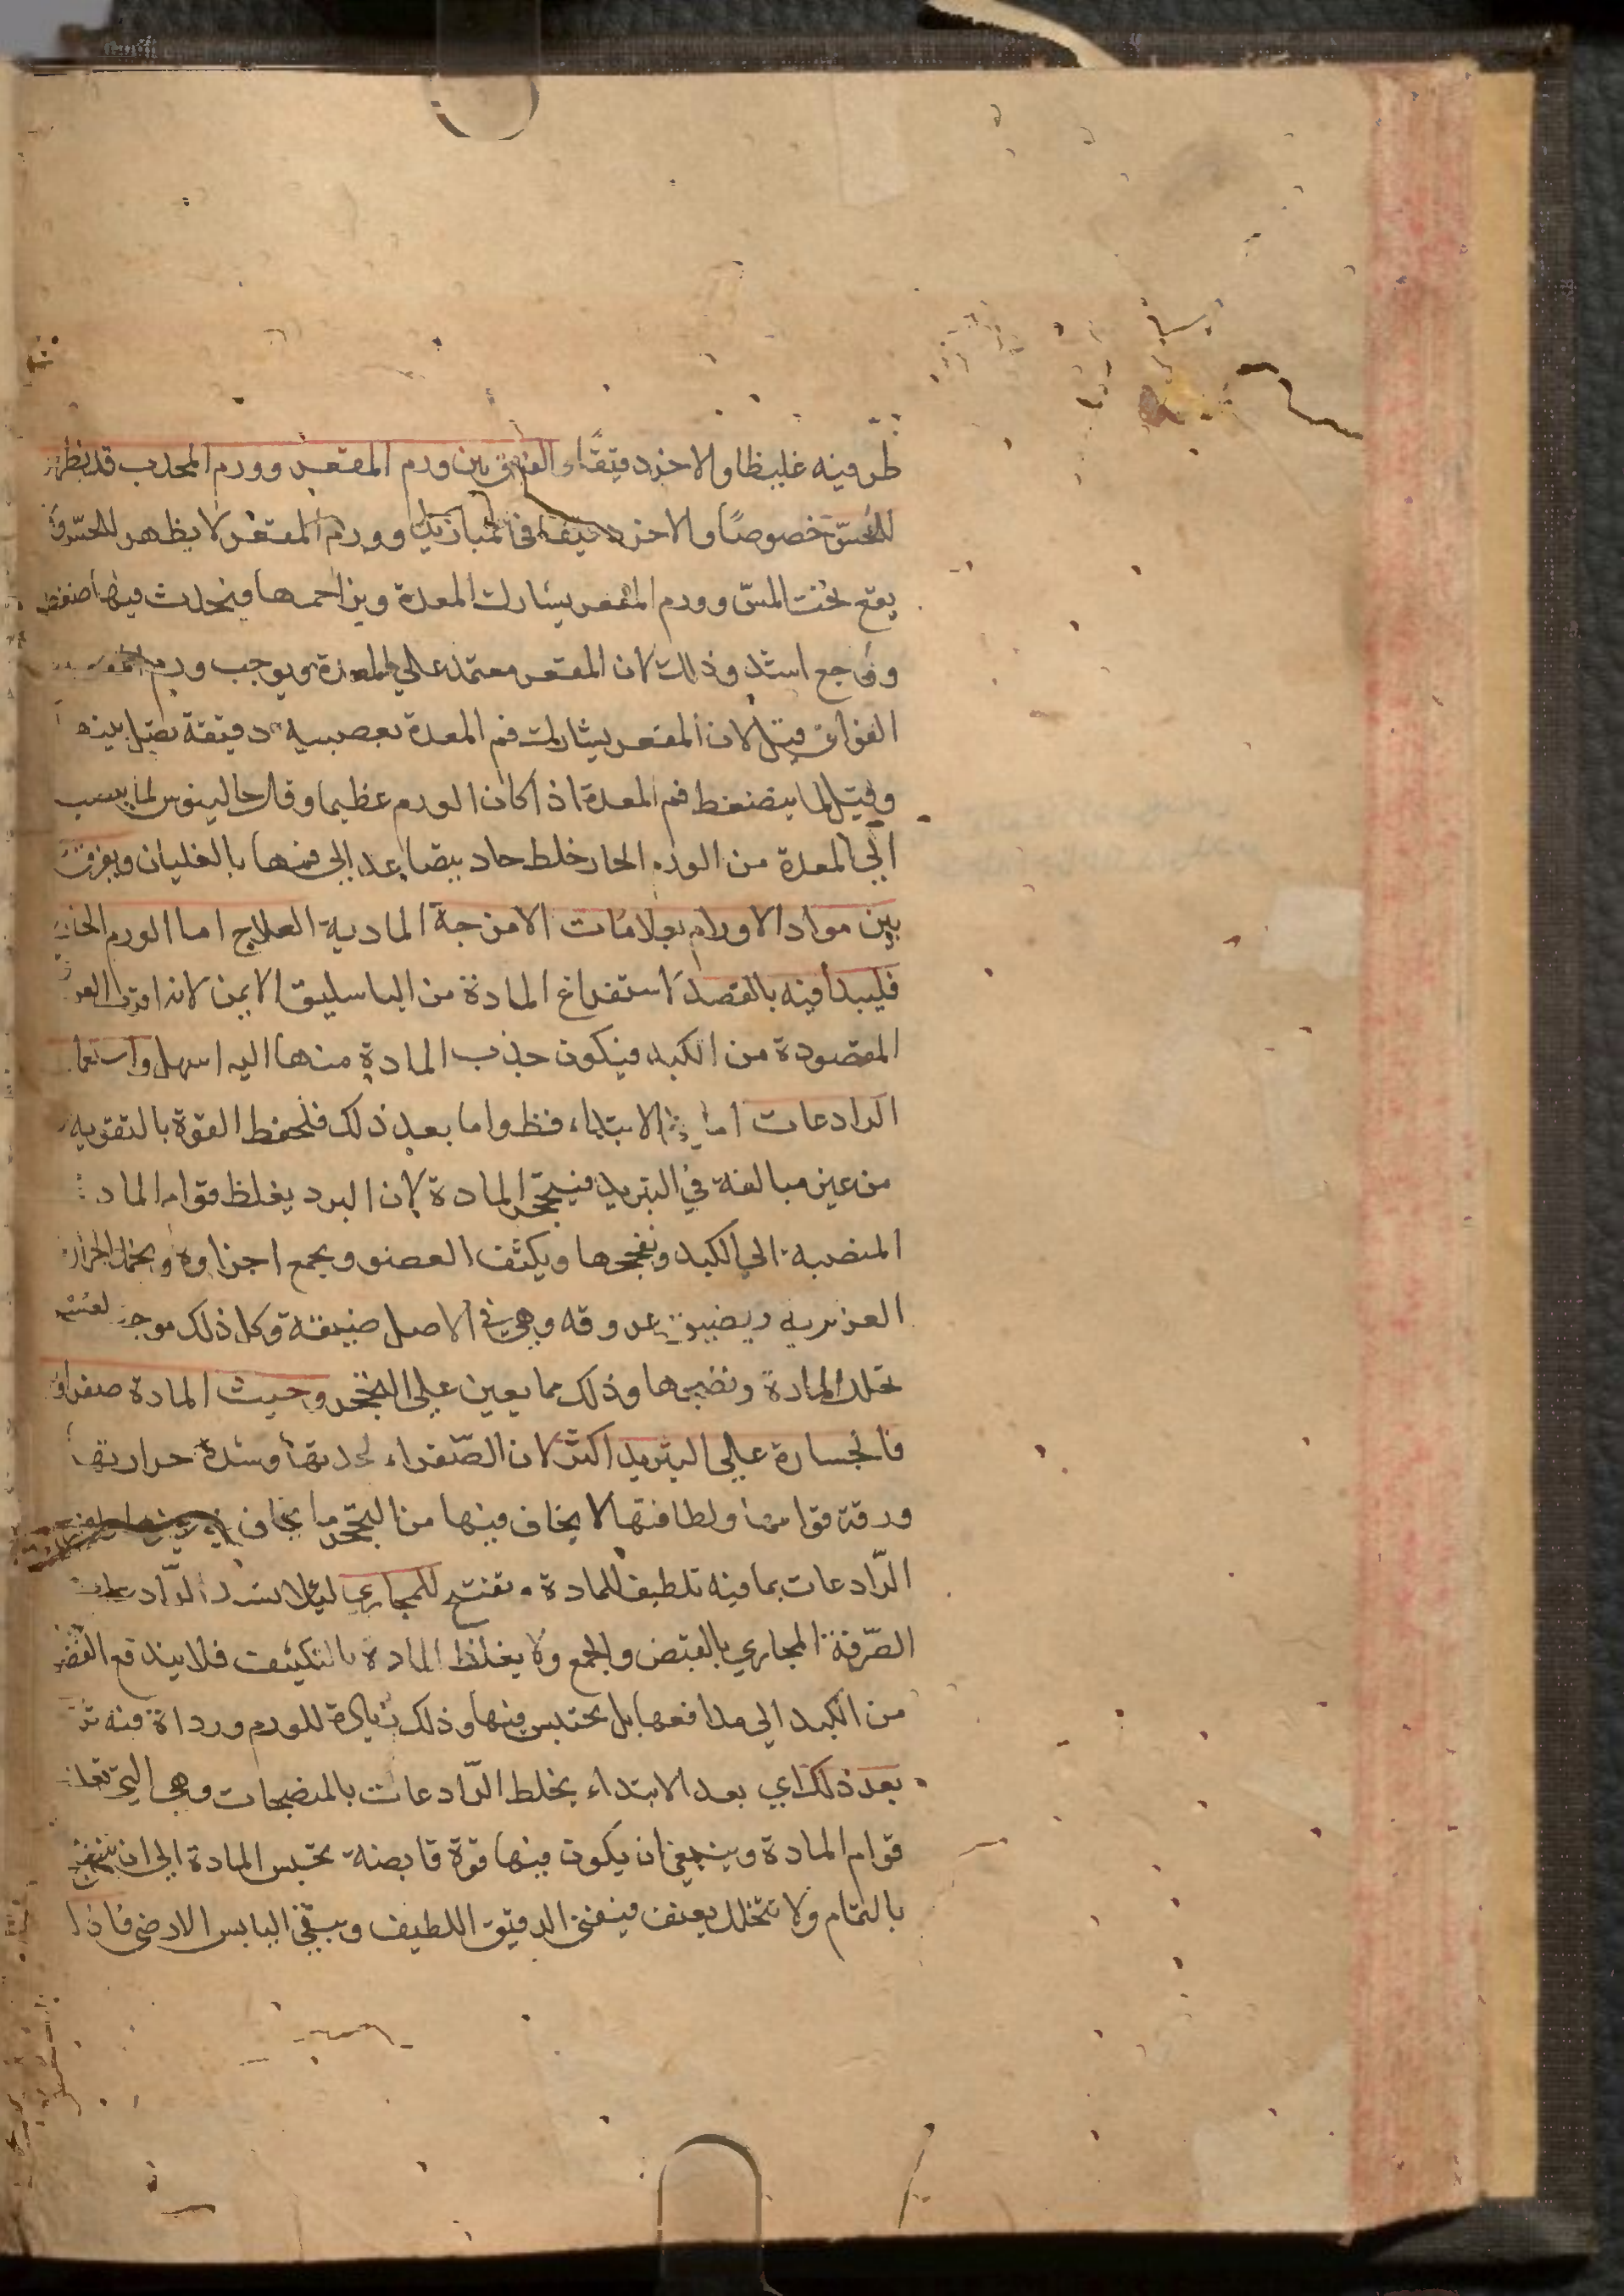 طرفيه غليظا والاخر دقيقا والفرق بين ورم المقعر وورم المحدب قد يظهر
للحس خصوصا والاخر دقيقا في المهازيل وورم المقعر لا يظهر للحس
يقع تحت المس وورم المقعر يشارك المعدة ويزاحمها فيحدث فيها ضغط
ووجع اشد وذلك لان المقعر معتمد على المعدة ويوجب ورم المقعر
الفواق قيل لان المقعر يشارك فم المعدة بعصبية دقيقة تصل بينهما
وقيل لما ينضغط فم المعدة اذا كان الورم عظيما وقال جالينوس لما ينصب
الي المعدة من الورم الحار خلط حاد يتصاعد الي فمها بالغليان ويفرق
بين مواد الاورام بعلامات الامزجة المادية العلاج اما الورم الحار
فليبدأ فيه بالفصد لاستفراغ المادة من الباسليق الايمن لانه اقرب العروق
المفصودة من الكبد فيكون جذب المادة منها اليه اسهل واستعمال
الرادعات اما في الابتداء فظ واما بعد ذلك فلحفظ القوة بالتقوية
من غير مبالغة في التبريد فيتحجر المادة لان البرد يغلظ قوام المادة
المنصبة الي الكبد ويفججها ويكثف العضو ويجمع اجزاوه ويخمد الحرارة
الغريزية ويضيق عروقه وهي في الاصل ضيقة وكل ذلك موجب لعسر
تحلل المادة ونضجها وذلك مما يعين علي التحجر وحيث المادة صفراوية
فالجسارة علي التبريد اكثر لان الصّفراء لحدتها وشدة حرارتها
ورقة قوامها ولطافتها لا يخاف فيها من التحجر ما يخاف في غيرها
الرّادعات بما فيه تلطيف للمادة وتفتيح للمجاري ليلا يسد الرّادعات
الصّرفة المجاري بالقبض والجمع ولا يغلظ المادة بالتكثيف فلا يندفع الفضل
من الكبد الي مدافعها بل يحتبس فيها وذلك زيادة للورم ورداة فيه ثم
بعد ذلك اي بعد الابتداء يخلط الرّادعات بالمنضجات وهي التي تعدل
قوام المادة وينبغي ان يكون فيها قوة قابضة تحبس المادة الي ان تنضج
بالتمام ولا تتحلل بعنف فيفني الدقيق اللطيف ويبقي اليابس الارضي فاذا